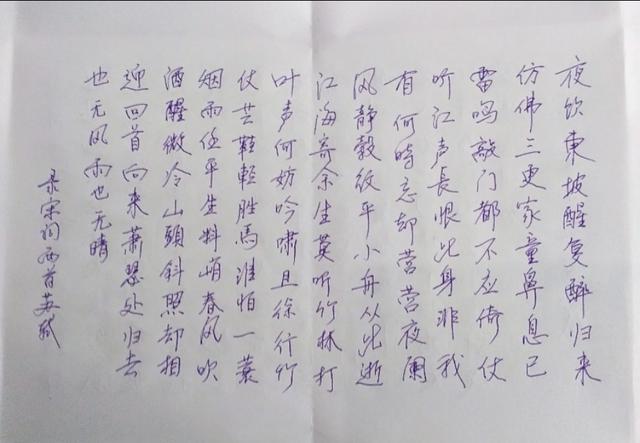 夜饮東坡醒复醉归来
仿佛三更家童鼻息已
雷鸣敲门都不应倚仗
听江声長恨此身非我
有何時忘却营营夜阑
风静縠纹平小舟从此逝
江海寄余生莫听竹林打
叶声何妨吟啸且徐行竹
仗芒鞋輕胜馬谁怕一蓑
烟雨任平生料峭春风吹
酒醒微冷山頭斜照却相
迎回首向来萧瑟处归去
也无风雨也无晴
录宋词两首苏轼